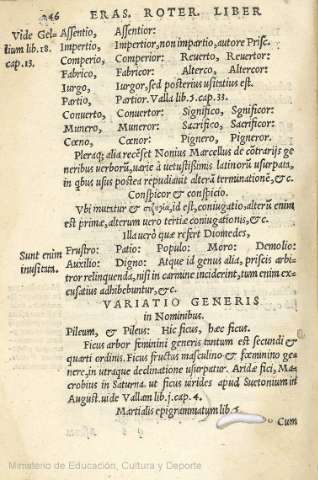 246 ERAS. ROTER. LIBER
Vide Gel=
lium lib. 18.
cap. 13.
Assentio, Assentior:
Impertio, Impertior, non impartio, autore Prisc.
Comperio, Comperior: Reuerto, Reuertor:
Fabrico, Fabricor: Alterco, Altercor:
Iurgo, Iurgor, sed posterius usitatius est.
Partio, Partior. Valla lib. 5. cap. 33.
Conuerto, Conuertor: Significo, Significor:
Munero, Muneror: Sacrifico, Sacrificor:
Cœno, Cœnor: Pignero, Pigneror.
Pleraq; alia recẽset Nonius Marcellus de cõtrarijs ge
neribus uerborũ, uariè à uetustissimis latinorũ usurpata,
in qbus usus postea repudiauit alterã terminationẽ, &c.
Conspicor & conspicio.
Vbi mutatur & συζυγία, id est, coniugatio, alterũ enim
est primæ, alterum uero tertiæ coniugationis, &c.
Illa uerò quæ refert Diomedes,
Sunt enim
inusitata.
Frustro: Patio: Populo: Moro: Demolio:
Auxilio: Digno: Atque id genus alia, priscis arbi=
tror relinquenda, nisi in carmine inciderint, tum enim ex=
cusatius adhibebuntur, &c.
VARIATIO GENERIS
in Nominibus.
Pileum, & Pileus: Hic ficus, hæc ficus.
Ficus arbor fœminini generis tantum est secundi &
quarti ordinis. Ficus fructus masculino & fœminino ge
nere, in utraque declinatione usurpatur. Aridæ fici, Ma
crobius in Saturna. ut ficus uirides apud Suetonium in
August. uide Vallam lib. j. cap. 4.
Martialis epigrammatum lib.
Cum
Ministerio de Educación, Cultura y Deporte